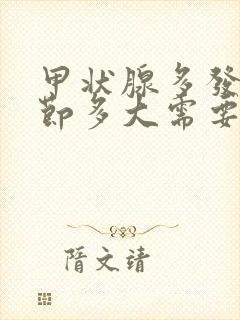 甲状腺多發
節多大需要
隋文靖